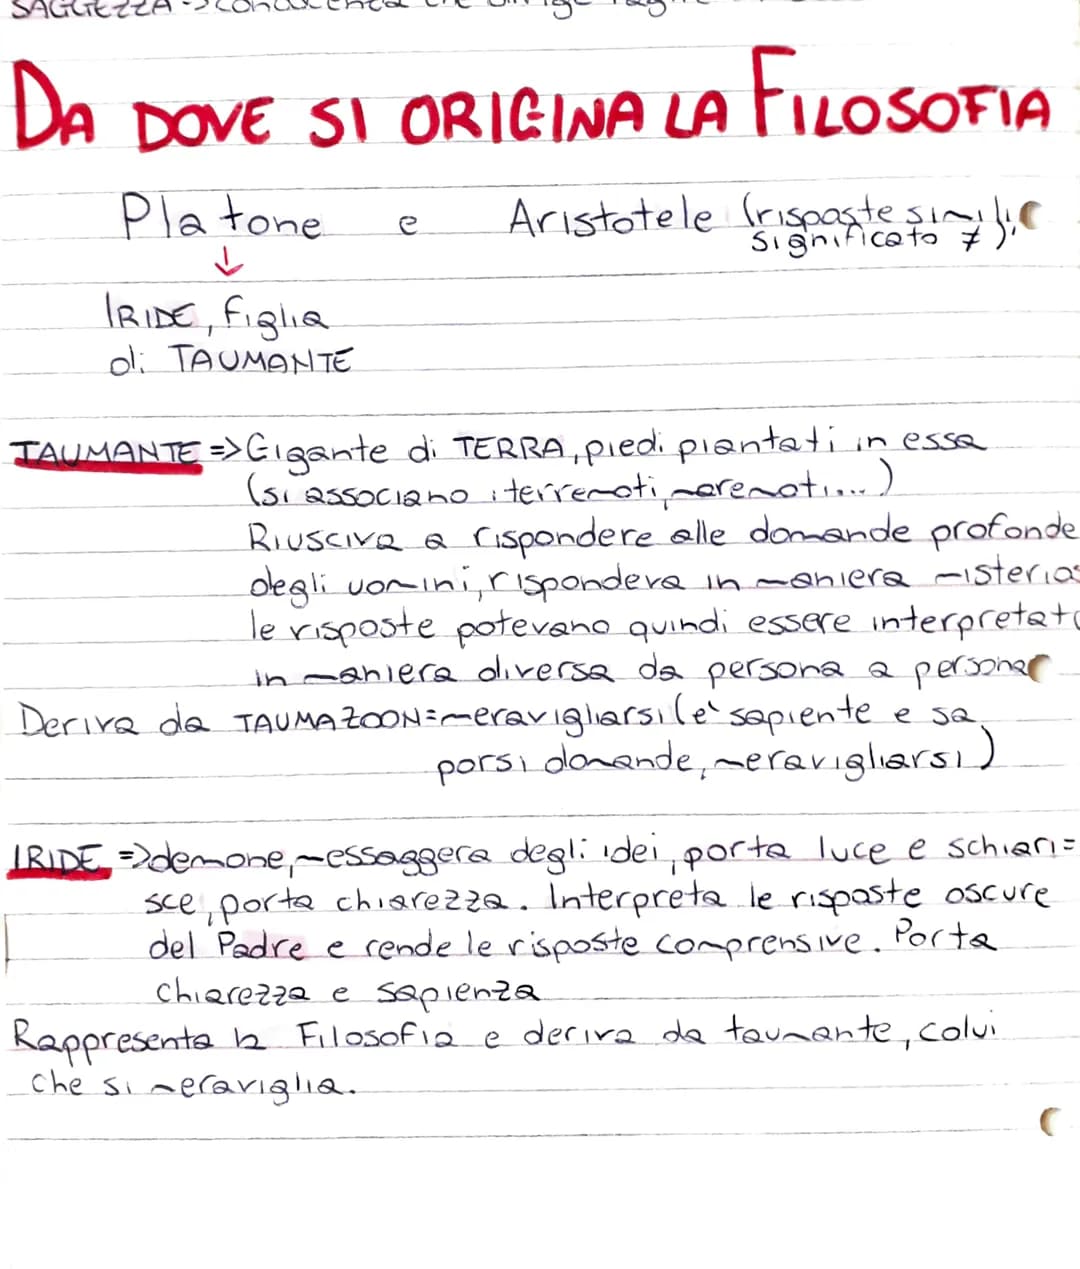 SAGGEZZA -> conoscenza che dirige
DA DOVE SI ORIGINA LA FILOSOFIA
Platone e Aristotele (risposte simili,
significato ≠)
↓
IRIDE, figlia
di TAUMANTE
TAUMANTE => Gigante di TERRA, piedi piantati in essa
(si associano i terremoti, maremoti...)
Riusciva a rispondere alle domande profonde
degli uomini, rispondeva in maniera misterios
le risposte potevano quindi essere interpretat
in maniera diversa da persona a persona
Deriva da TAUMAZOON = meravigliarsi (è sapiente e sa
porsi domande, meravigliarsi)
IRIDE => demone, messaggera degli idei, porta luce e schiari=
sce, porta chiarezza. Interpreta le risposte oscure
del Padre e rende le risposte comprensive. Porta
chiarezza e sapienza
Rappresenta la Filosofia e deriva da taumante, colui
che si meraviglia.